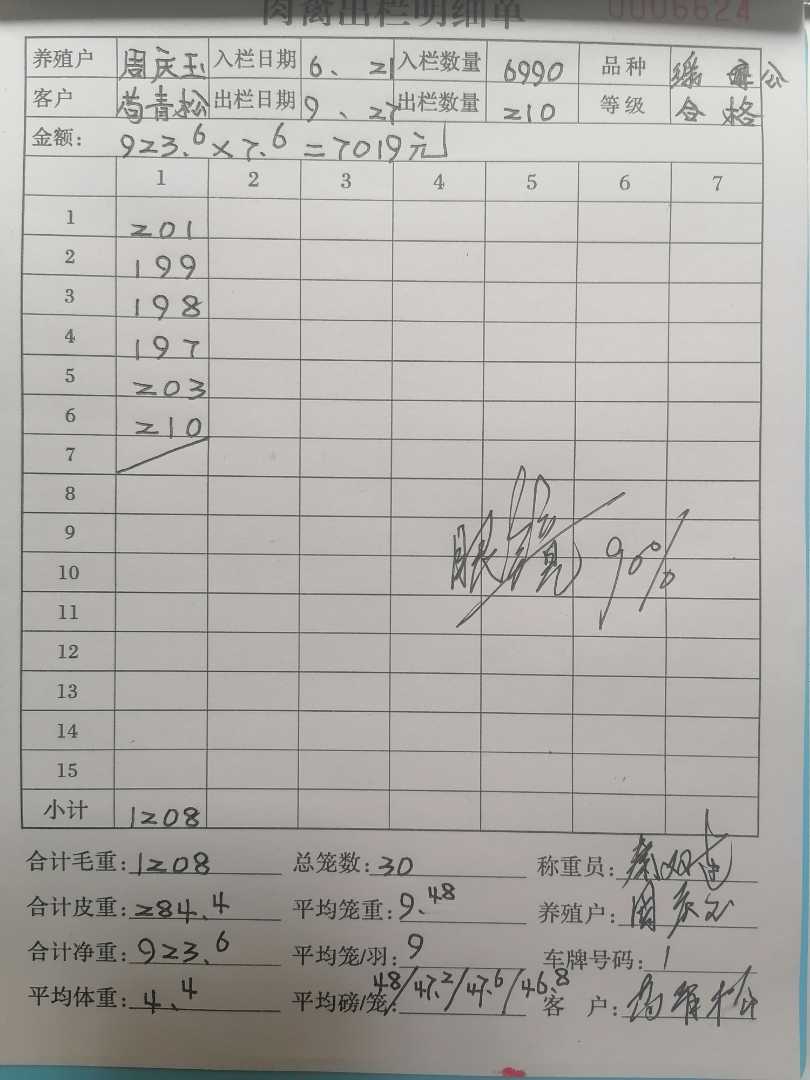 肉禽出栏明细单 0006624
养殖户 周庆玉 入栏日期 6、21 入栏数量 6990 品种 公
客户 苟青松 出栏日期 9、27 出栏数量 210 等级 合格
金额: 923.6×7.6=7019元
1 2 3 4 5 6 7
1 201
2 199
3 198
4 197
5 203
6 210
7
8
9
10
11
12
13
14
15
眼 亮 90%
小计 1208
合计毛重: 1208 总笼数: 30 称重员:
合计皮重: 284.4 平均笼重: 9.48 养殖户: 周庆玉
合计净重: 923.6 平均笼/羽: 9 车牌号码: 1
平均体重: 4.4 平均磅/笼: 48/47.2/47.6/46.8 客 户: